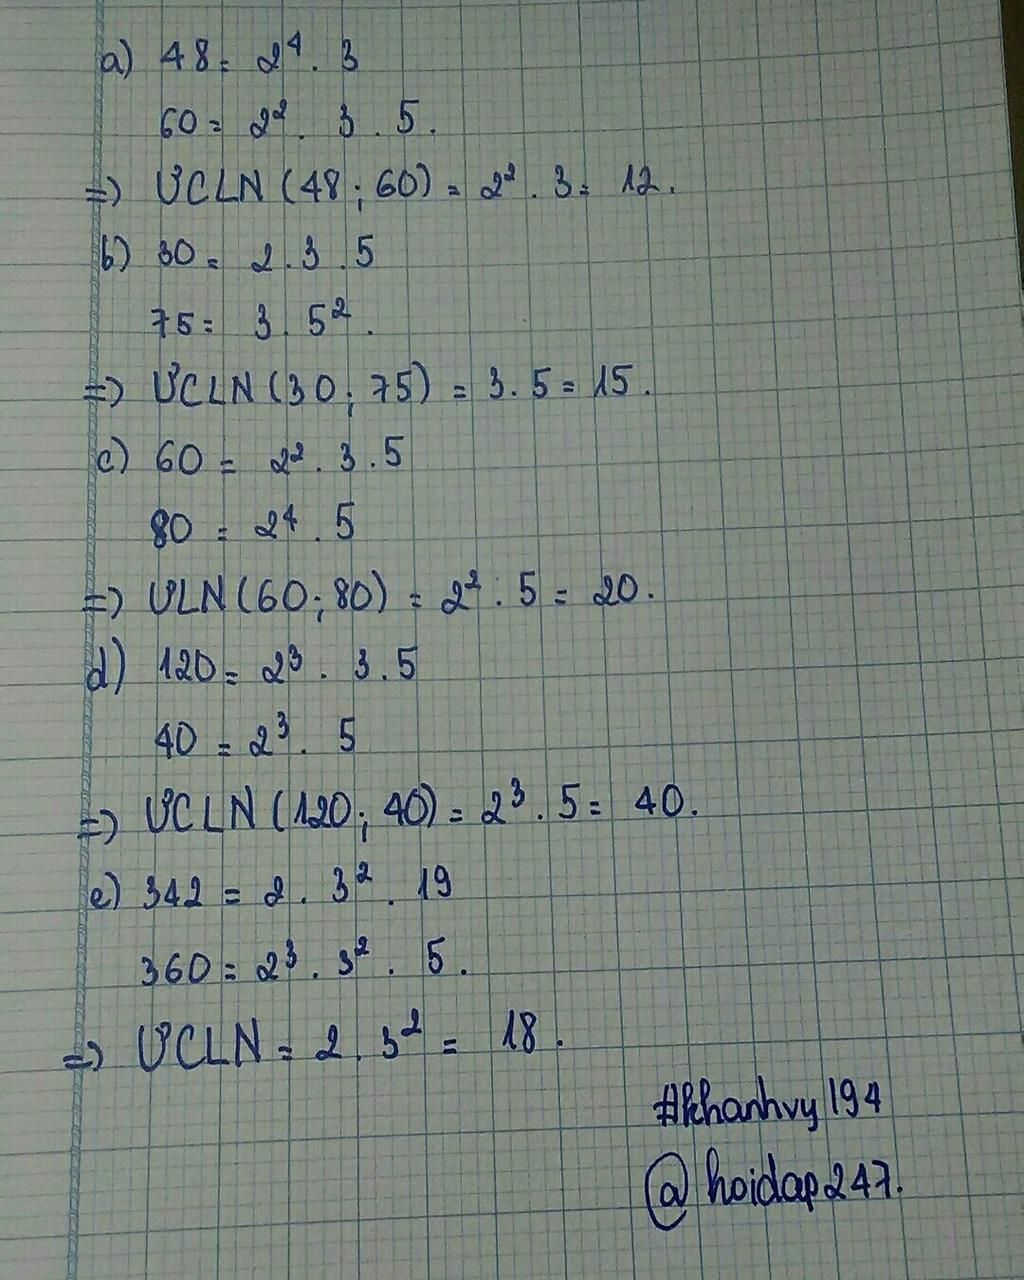 a) 48 = 2⁴ . 3
60 = 2² . 3 . 5.
=) ƯCLN (48 ; 60) = 2² . 3 = 12.
b) 30 = 2 . 3 . 5
75 = 3 . 5² .
=) ƯCLN (30 ; 75) = 3 . 5 = 15 .
c) 60 = 2² . 3 . 5
80 = 2⁴ . 5
=) ƯLN (60 ; 80) = 2² . 5 = 20 .
d) 120 = 2³ . 3 . 5
40 = 2³ . 5
=) ƯCLN (120 ; 40) = 2³ . 5 = 40 .
e) 342 = 2 . 3² . 19
360 = 2³ . 3² . 5 .
=) ƯCLN = 2 . 3² = 18 .
#khanhvy194
@hoidap247.